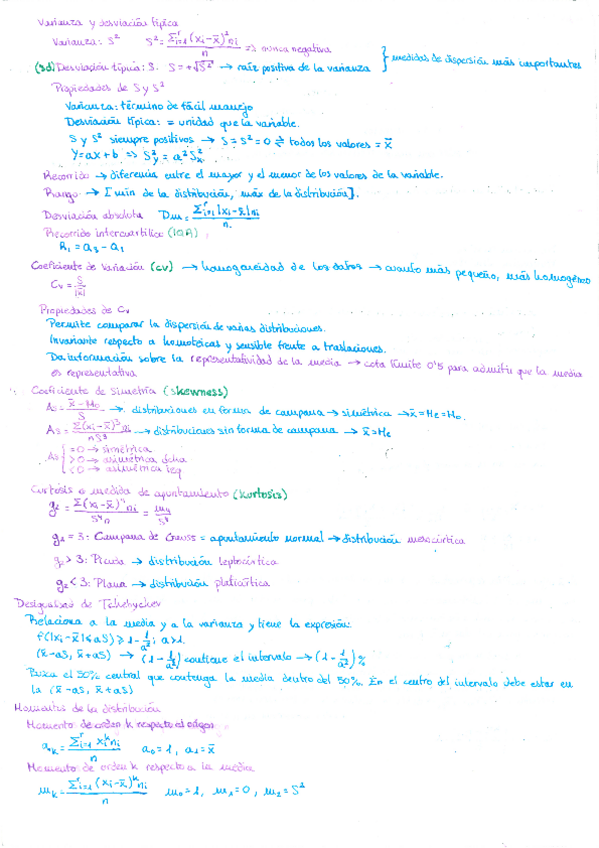 Varianza y desviación típica
Varianza: S² S² = Σʳᵢ₌₁(xᵢ-x̄)²nᵢ / n => nunca negativa
(sd) Desviación típica: S. S = +√S² → raíz positiva de la varianza } medidas de dispersión más importantes
Propiedades de S y S²
Varianza: término de fácil manejo
Desviación típica: = unidad que la variable.
S y S² siempre positivos → S = S² = 0 ⇄ todos los valores = x̄
Y = ax + b => S²y = a² S²x
Recorrido → diferencia entre el mayor y el menor de los valores de la variable.
Rango → [min de la distribución, máx de la distribución].
Desviación absoluta Dm = Σʳᵢ₌₁|xᵢ-x̄|nᵢ / n
Recorrido intercuartílico (IQR)
R₁ = a₃ - a₁
Coeficiente de Variación (CV) → homogeneidad de los datos → cuanto más pequeño, más homogéneo
Cv = S / |x̄|
Propiedades de Cv
Permite comparar la dispersión de varias distribuciones.
Invariante respecto a homotecias y sensible frente a traslaciones.
Da información sobre la representatividad de la media → cota límite 0'5 para admitir que la media
es representativa
Coeficiente de Simetría (Skewness)
As = x̄ - Mo / S → distribuciones en forma de campana → simétrica → x̄ = Me = Mo.
As = Σ(xᵢ-x̄)³nᵢ / nS³ → distribuciones sin forma de campana → x̄ = Me
As { = 0 → simétrica
> 0 → asimétrica dcha
< 0 → asimétrica izq
Curtosis o medida de apuntamiento (Kurtosis)
g₂ = Σ(xᵢ-x̄)⁴nᵢ / S⁴n = m₄ / S⁴
g₂ = 3: Campana de Gauss = apuntamiento normal → distribución mesocúrtica
g₂ > 3: Picuda → distribución leptocúrtica
g₂ < 3: Plana → distribución platicúrtica
Desigualdad de Tchebychev
Relaciona a la media y a la varianza y tiene la expresión:
f(|xᵢ-x̄| ≤ aS) ≥ 1 - 1/a²; a>1.
(x̄-aS, x̄+aS) → (1 - 1/a²) contiene el intervalo → (1 - 1/a²) %
Busca el 50% central que contenga la media dentro del 50%. En el centro del intervalo debe estar en
la (x̄-aS, x̄+aS)
Momentos de la distribución
Momento de orden k respecto al origen
aₖ = Σʳᵢ₌₁ xᵢᵏnᵢ / n a₀ = 1, a₁ = x̄
Momento de orden k respecto a la media
mₖ = Σʳᵢ₌₁(xᵢ-x̄)ᵏnᵢ / n m₀ = 1, m₁ = 0, m₂ = S²